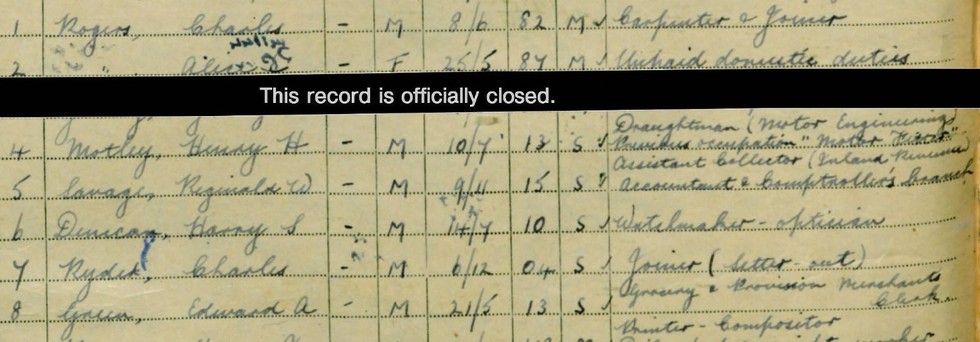 1 Rogers, Charles - M 8/6 82 M Carpenter & Joiner
2 " Alice - F 25/5 87 M Unpaid domestic duties
This record is officially closed.
Draughtman (Motor Engineering)
4 Motley, Henry H - M 10/7 13 S Previous occupation "Motor
Assistant Collector (Inland Revenue)
5 Savage, Reginald W - M 9/11 15 S Accountant & Comptroller's Branch
6 Duncan, Harry S - M 14/7 10 S Watchmaker - optician
7 Ryder, Charles - M 6/12 04 S Joiner ( setter - out)
Grocery & Provision Merchants
8 Green, Edward A - M 21/5 13 S Clerk.
Printer - Compositor